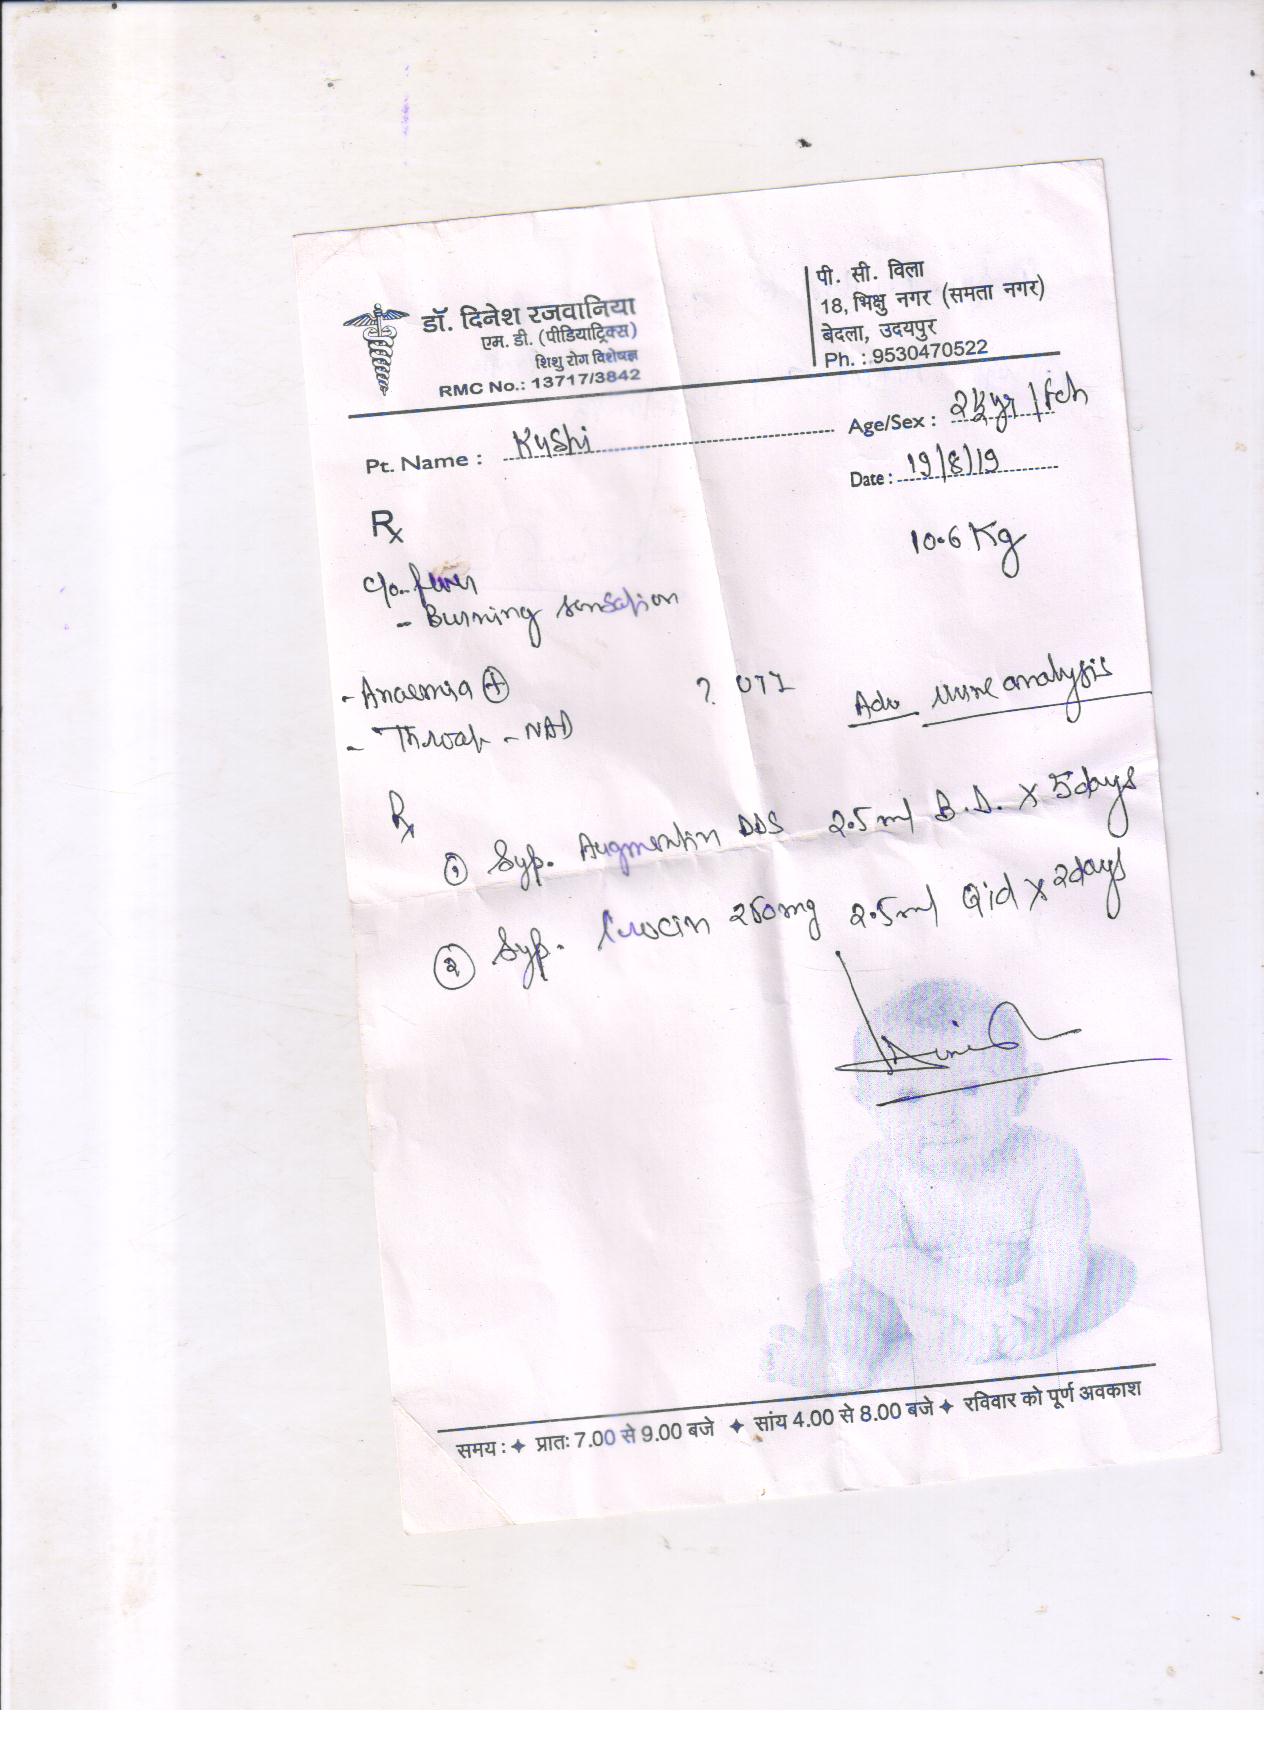 डॉ. दिनेश रजवानिया
एम. डी. (पीडियाट्रिक्स)
शिशु रोग विशेषज्ञ
RMC No.: 13717/3842
पी. सी. विला
18, भिक्षु नगर (समता नगर)
बेदला, उदयपुर
Ph. : 9530470522
Pt. Name : Kyshi
Age/Sex : 2½yr / fch
Date : 19/8/19
Rx
10.6 Kg
c/o - fever
- Burning sensation
- Anaemia +
? UTI
Adv urine analysis
- Throat - NAD
Rx
① Syp. Augmentin DDS 2.5 ml B.D. x 5days
② Syp. Crocin 250mg 2.5 ml Qid x 2days
समय : प्रातः 7.00 से 9.00 बजे सांय 4.00 से 8.00 बजे रविवार को पूर्ण अवकाश